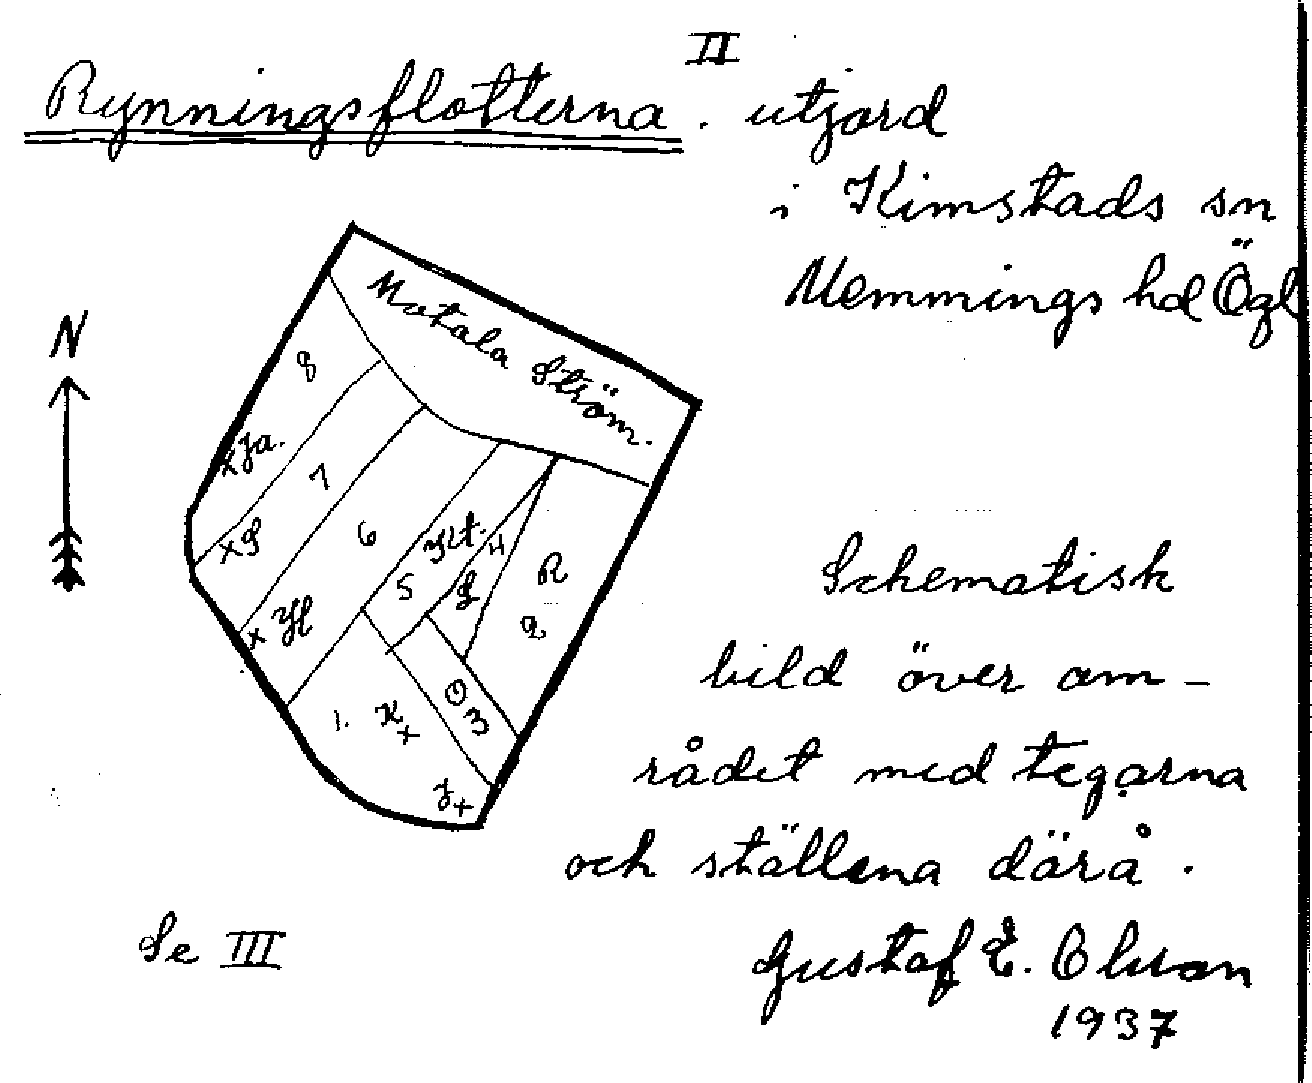 II
Rynningsflotterna. utjord
i Kimstads sn
Memmings hd Ögl
N
Motala Ström.
8
x Ja.
7
x S
6
x Hl
Kt.
4
5
L
R
2
O
3
1.
K x
J x
Schematisk
bild över om-
rådet med tegarna
och ställena därå.
Gustaf E. Olsson
1937
Se III